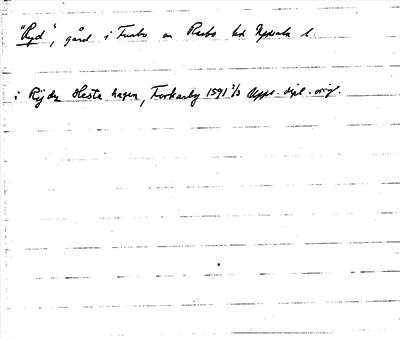 "Ryd", gård i Funbo sn Rasbo hd Uppsala l.
i Rÿdz Hesta hagen, Forkarby 1591 1/3 Upps. dipl. orig.